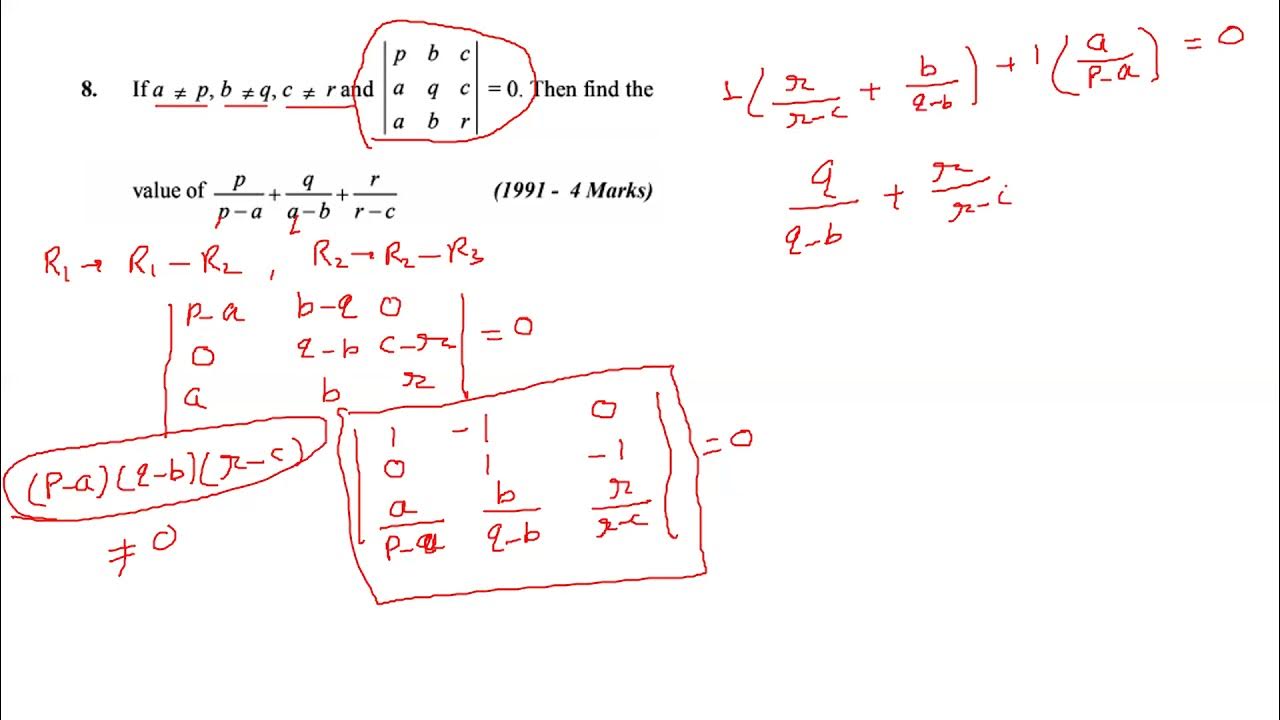 8. If a ≠ p, b ≠ q, c ≠ r and | p b c | = 0. Then find the
| a q c |
| a b r |
value of p/(p−a) + q/(q−b) + r/(r−c) (1991 - 4 Marks)
R₁ → R₁ − R₂ , R₂ → R₂ − R₃
| p−a b−q 0 |
| 0 q−b c−r | = 0
| a b r |
(p−a)(q−b)(r−c)
≠ 0
| 1 −1 0 |
| 0 1 −1 | = 0
| a/(p−a) b/(q−b) r/(r−c) |
1(r/(r−c) + b/(q−b)) + 1(a/(p−a)) = 0
q/(q−b) + r/(r−c